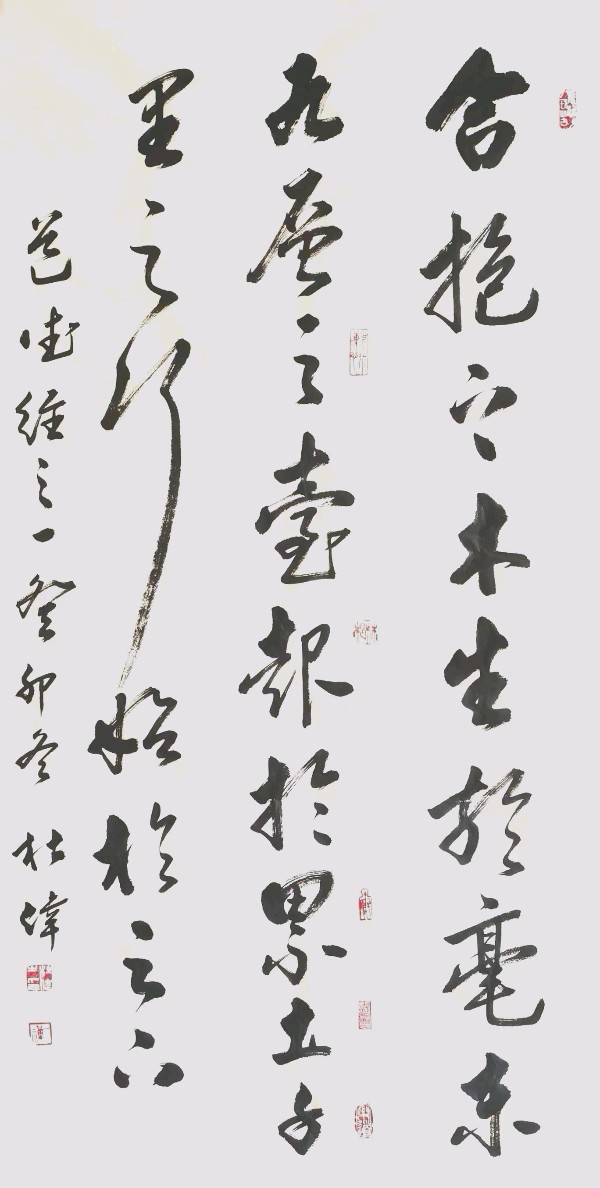 合抱之木生於毫末
九層之臺起於累土千
里之行始於足下
道德經之一癸卯冬 杜偉